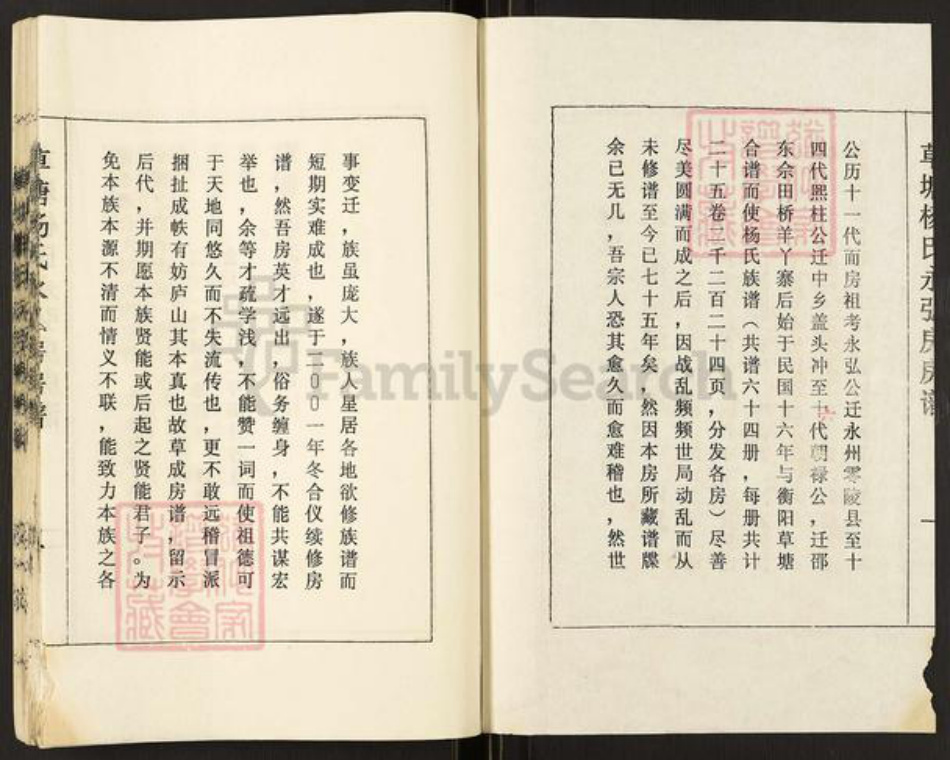 草塘杨氏永弘房房谱
公历十一代而房祖考永弘公迁永州零陵县至十
四代熙柱公迁中乡盖头冲至十六代朝禄公，迁邵
东佘田桥羊丫寨后始于民国十六年与衡阳草塘
合谱而使杨氏族谱（共谱六十四册，每册共计
二十五卷二千二百二十四页，分发各房）尽善
尽美圆满而成之后，因战乱频频世局动乱而从
未修谱至今已七十五年矣，然因本房所藏谱牒
余已无几，吾宗人恐其愈久而愈难稽也，然世
事变迁，族虽庞大，族人星居各地欲修族谱而
短期实难成也，遂于二00一年冬合仪续修房
谱，然吾房英才远出，俗务缠身，不能共谋宏
举也，余等才疏学浅，不能赞一词而使祖德可
于天地同悠久而不失流传也，更不敢远稽冒派
捆扯成帙有妨庐山其本真也故草成房谱，留示
后代，并期愿本族贤能或后起之贤能君子。为
免本族本源不清而情义不联，能致力本族之各
草塘杨氏永弘房房谱
FamilySearch